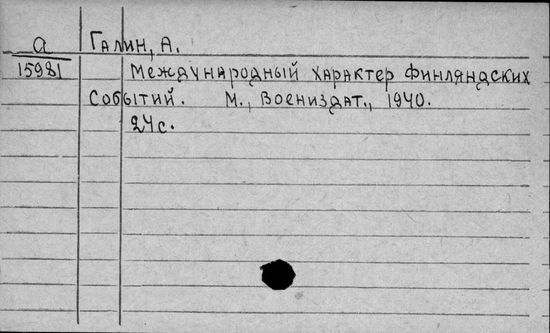 а Галин, А.
15981 Международный характер финляндских
событий. М., Воениздат., 1940.
24с.